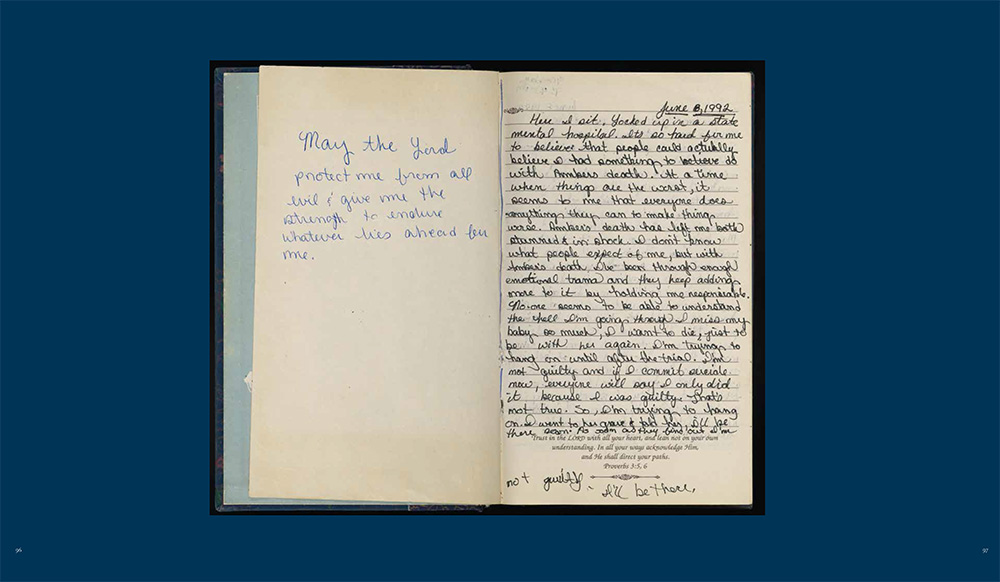 May the Lord
protect me from all
evil & give me the
strength to endure
whatever lies ahead for
me.
June 8, 1992
Here I sit, locked up in a state
mental hospital. Its so hard for me
to believe that people could actually
believe I had something to do
with Ambers death. At a time
when things are the worst, it
seems to me that everyone does
anything they can to make thing
worse. Amber's death has left me both
stunned & in shock. I don't know
what people expect of me, but with
Amber's death, I've been through enough
emotional trama and they keep adding
more to it by holding me responsible.
No-one seems to be able to understand
the hell I'm going through I miss my
baby so much, I want to die, just to
be with her again. I'm trying to
hang on until after the trial. I'm
not guilty and if I commit suicide
now, everyone will say I only did
it because I was guilty. That's
not true. So, I'm trying to hang
on. I went to her grave & told her, I'll be
there soon. As soon as they find out I'm
Trust in the LORD with all your heart, and lean not on your own
understanding. In all your ways acknowledge Him,
and He shall direct your paths.
Proverbs 3:5, 6
not guilty - I'll be there.
96
97